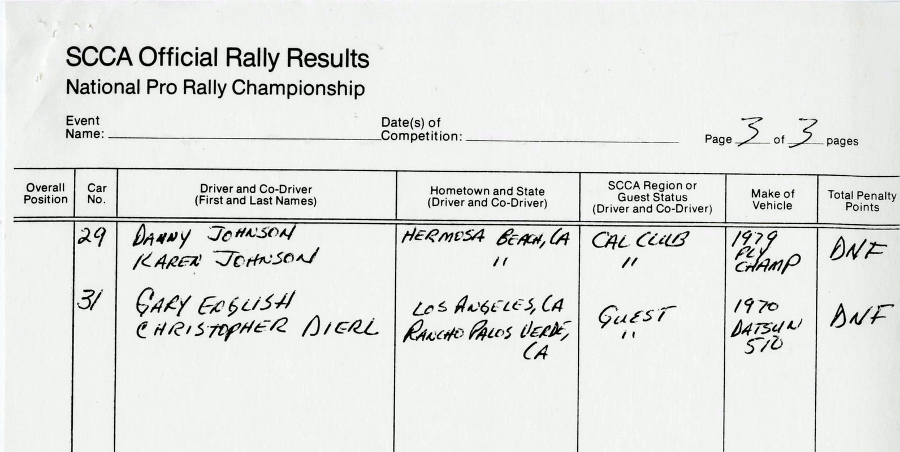 SCCA Official Rally Results
National Pro Rally Championship
Event Name: Date(s) of Competition: Page 3 of 3 pages
Overall Position Car No. Driver and Co-Driver (First and Last Names) Hometown and State (Driver and Co-Driver) SCCA Region or Guest Status (Driver and Co-Driver) Make of Vehicle Total Penalty Points
29 DANNY JOHNSON HERMOSA BEACH, CA CAL CLUB 1979 DNF
KAREN JOHNSON " " PLY
CHAMP
31 GARY ENGLISH LOS ANGELES, CA GUEST 1970 DNF
CHRISTOPHER DIERL RANCHO PALOS VERDE, " DATSUN
CA 510